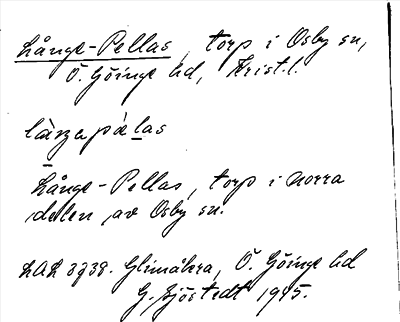 Långe-Pellas, torp i Osby sn,
Ö. Göinge hd, Krist.l.
Långe-Pellas, torp i norra
delen av Osby sn.
LAL 3738. Glimåkra, Ö. Göinge hd
G. Sjöstedt 1945.